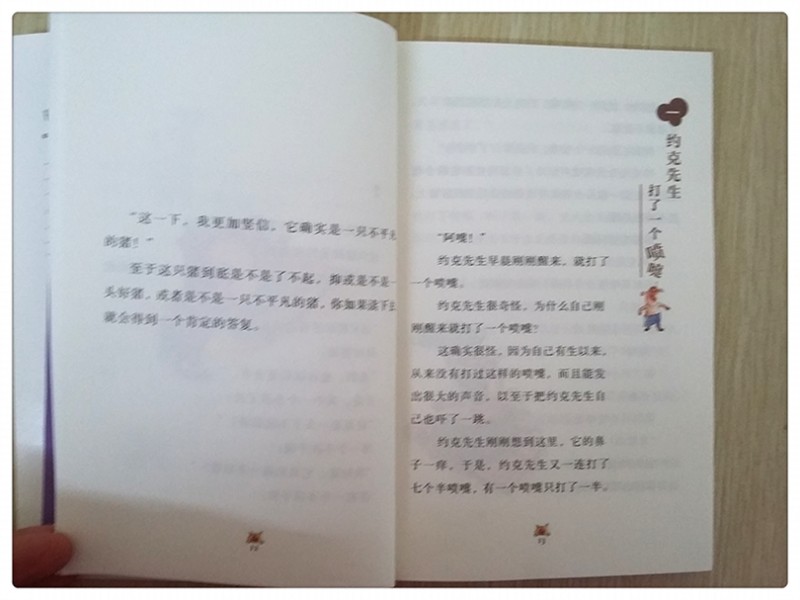 “这一下，我更加坚信，它确实是一只不平凡
的猪！”
至于这只猪到底是不是了不起，抑或是不是一
头好猪，或者是不是一只不平凡的猪，你如果读下去
就会得到一个肯定的答复。
一
约克先生
打了一个喷嚏
“阿嚏！”
约克先生早晨刚刚醒来，就打了
一个喷嚏。
约克先生很奇怪，为什么自己刚
刚醒来就打了一个喷嚏？
这确实很怪，因为自己有生以来，
从来没有打过这样的喷嚏，而且能发
出很大的声音，以至于把约克先生自
己也吓了一跳。
约克先生刚刚想到这里，它的鼻
子一痒，于是，约克先生又一连打了
七个半喷嚏，有一个喷嚏只打了一半。